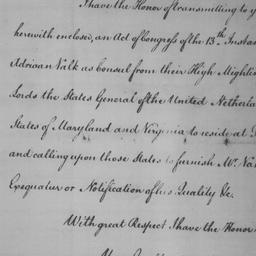 I have the Honor of transmitting to y
herewith enclosed, an Act of Congress of the 13th Insta
Adriaan Valk as Consul from their High Mightin
Lords the States General of the United Netherla
States of Maryland and Virginia to reside at
and calling upon those States to furnish Mr. Va
Exequatur or Notification of his Quality &c.
With great Respect I have the Honor